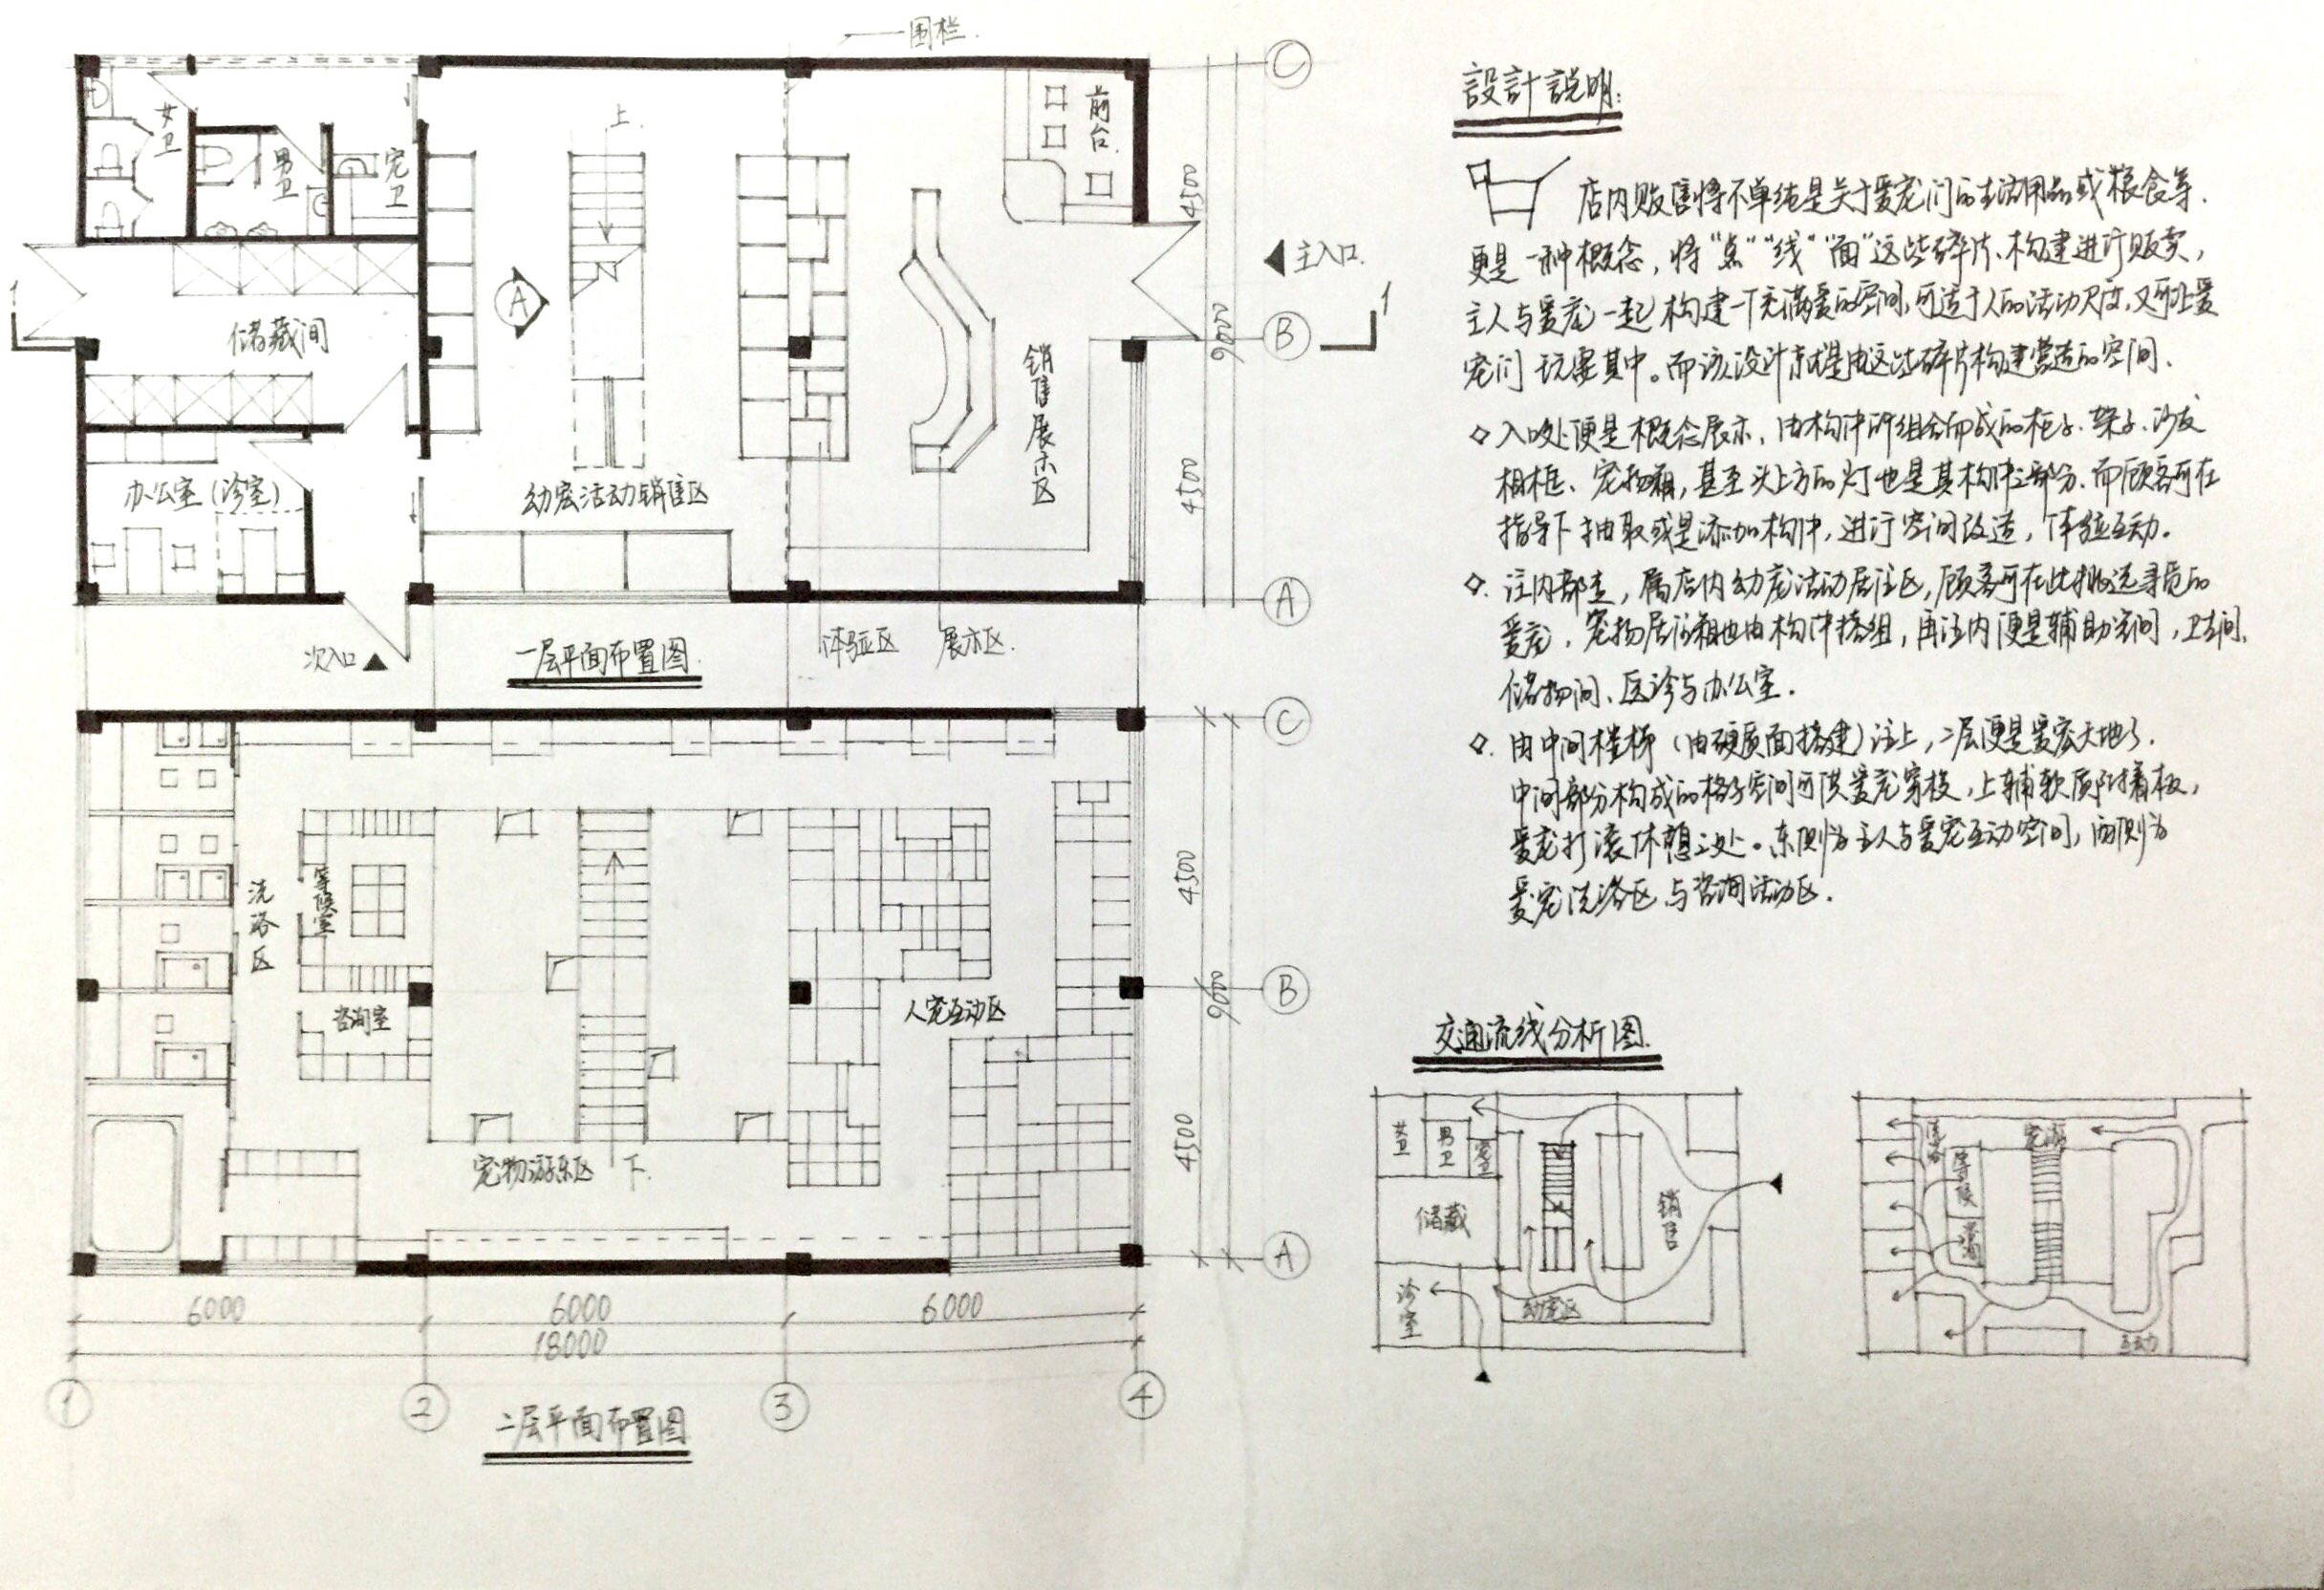 围栏
上
女卫
男卫
宠卫
前台
A
储藏间
办公室(诊室)
幼宠活动销售区
销售展示区
主入口
1
1
4500
9000
4500
C
B
A
次入口
一层平面布置图
体验区
展示区
洗浴区
等候室
咨询室
人宠互动区
宠物游乐区
下
4500
9000
4500
C
B
A
6000
6000
6000
18000
1
2
3
4
二层平面布置图
設計説明:
店内贩售将不单纯是关于爱宠们的生活用品或粮食等.
更是一种概念，将“点”“线”“面”这些碎片、构建进行贩卖，
主人与爱宠一起构建一个充满爱的空间,可适于人的活动尺度,又可让爱
宠们玩耍其中。而该设计就是由这些碎片构建营造的空间.
入口处便是概念展示，由构件所组合而成的柜子、架子、沙发
相框、宠物箱，甚至头上方的灯也是其构件之部分.而顾客可在
指导下抽取或是添加构件，进行空间改造，体验互动。
往内部走，属店内幼宠活动居住区，顾客可在此挑选寻觅的
爱宠，宠物居住箱也由构件搭组，再往内便是辅助空间，卫生间、
储物间、医诊与办公室.
由中间楼梯(由硬质面搭建)往上，二层便是爱宠天地了.
中间部分构成的格子空间可供爱宠穿梭，上铺软质附着板，
爱宠打滚休憩之处。东侧为主人与爱宠互动空间，西侧为
爱宠洗浴区与咨询活动区.
交通流线分析图.
女卫
男卫
宠卫
储藏
诊室
销售
幼宠区
洗浴
等候
宠游
互动